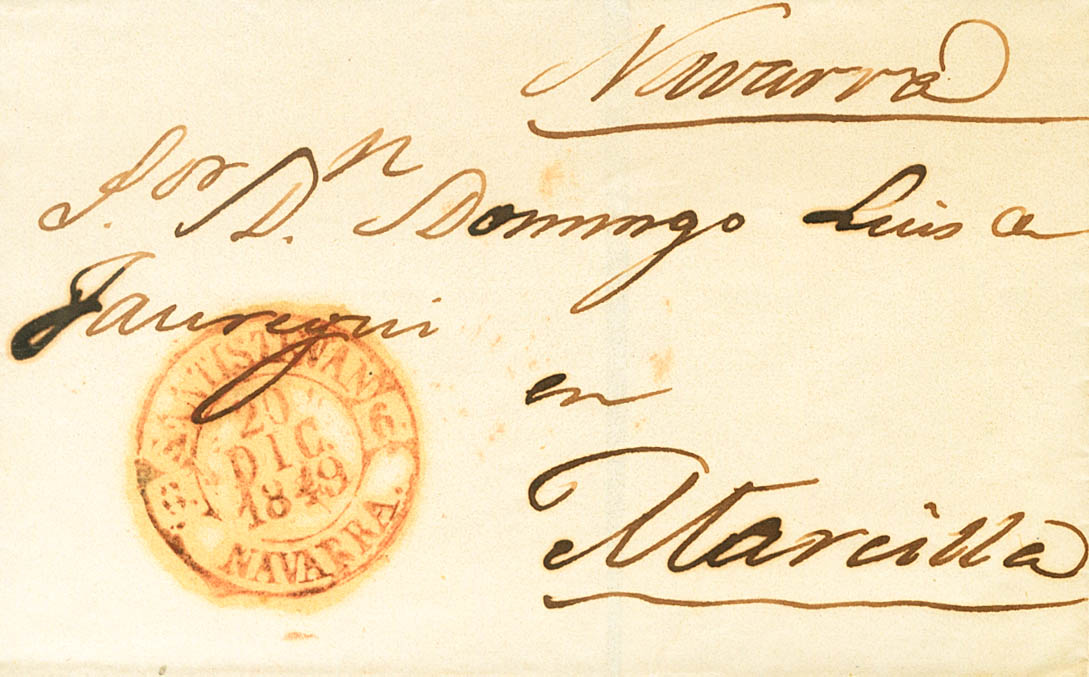 Navarra
S.or D.n Domingo Luis de
Jauregui
en
Marcilla
SANTISTEVAN
20
DIC.
1849
NAVARRA.